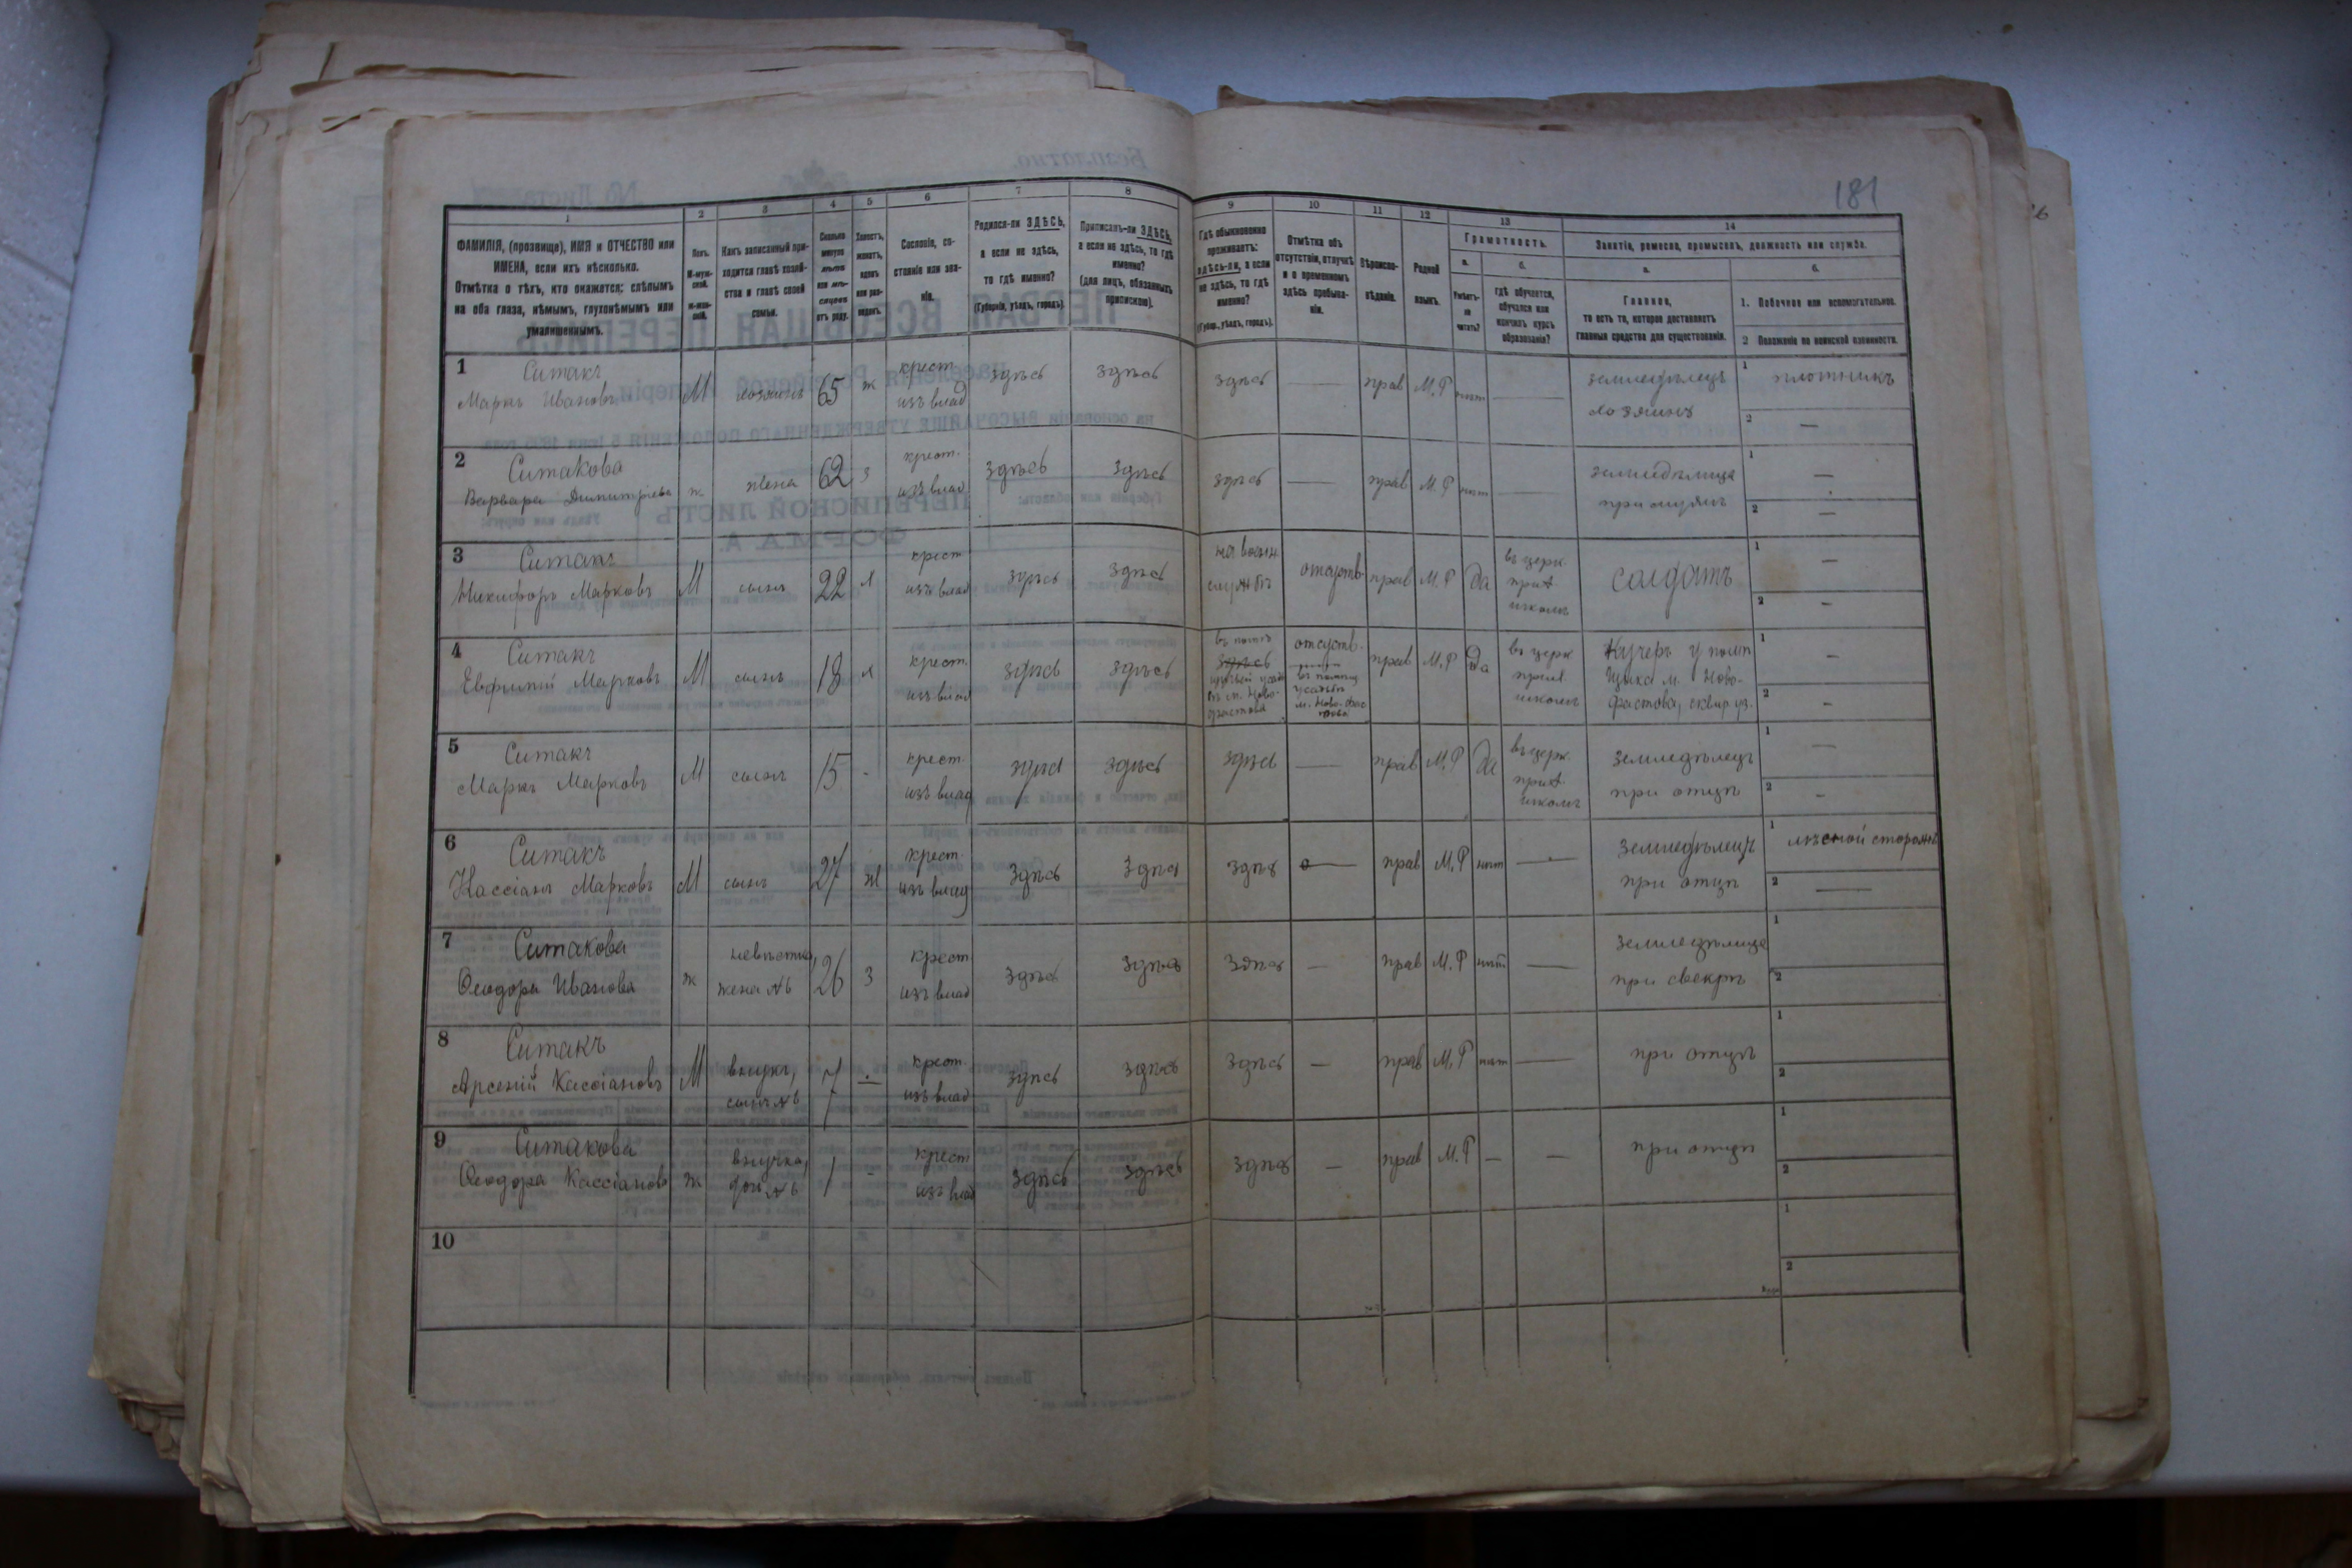 181
1 2 3 4 5 6 7 8 9 10 11 12 13 14
ФАМИЛІЯ, (прозвище), ИМЯ и ОТЧЕСТВО или
ИМЕНА, если ихъ нѣсколько.
Отмѣтка о тѣхъ, кто окажется: слѣпымъ
на оба глаза, нѣмымъ, глухонѣмымъ или
умалишеннымъ.
Полъ.
М-муж-
ской.
Ж-жен-
скій.
Какъ записанный при-
ходится главѣ хозяй-
ства и главѣ своей
семьи.
Сколько
минуло
лѣтъ
или мѣ-
сяцевъ
отъ роду.
Холостъ,
женатъ,
вдовъ
или раз-
веденъ.
Сословіе, со-
стояніе или зва-
ніе.
Родился-ли ЗДѢСЬ,
а если не здѣсь,
то гдѣ именно?
(Губернія, уѣздъ, городъ).
Приписанъ-ли ЗДѢСЬ,
а если не здѣсь, то гдѣ
именно?
(для лицъ, обязанныхъ
припискою).
Гдѣ обыкновенно
проживаетъ:
здѣсь-ли, а если
не здѣсь, то гдѣ
именно?
(Губер., уѣздъ, городъ).
Отмѣтка объ
отсутствіи, отлучкѣ
и о временномъ
здѣсь пребыва-
ніи.
Вѣроиспо-
вѣданіе.
Родной
языкъ.
Грамотность.
а.
Умѣетъ-
ли
читать?
б.
гдѣ обучается,
обучался или
кончилъ курсъ
образованія?
Занятіе, ремесло, промыселъ, должность или служба.
а.
Главное,
то есть то, которое доставляетъ
главныя средства для существованія.
б.
1. Побочное или вспомогательное.
2 Положеніе по воинской повинности.
1 Ситакъ
Маркъ Ивановъ М хозяинъ 65 ж крест. изъ влад здѣсь здѣсь здѣсь — прав М.Р нѣт — земледѣлецъ хозяинъ 1 плотникъ 2 —
2 Ситакова
Варвара Димитріева ж жена 62 з крест. изъ влад здѣсь здѣсь здѣсь — прав М.Р нѣт — земледѣлица при мужѣ 1 — 2 —
3 Ситакъ
Никифоръ Марковъ М сынъ 22 х крест изъ влад здѣсь здѣсь на воен. службѣ отсутств. прав М.Р да въ церк. прих. школѣ солдатъ 1 — 2 —
4 Ситакъ
Евфимій Марковъ М сынъ 18 х крест. изъ влад здѣсь здѣсь здѣсь въ м. Ново-фастова отсутств. усадьбѣ м. Ново-фас прав М.Р да въ церк прих. школѣ Кучеръ у помѣщика м. Ново-фастова, сквир уз. 1 — 2 —
5 Ситакъ
Маркъ Марковъ М сынъ 15 - крест. изъ влад здѣсь здѣсь здѣсь — прав М.Р да въ церк. прих. школѣ земледѣлецъ при отцѣ 1 — 2 —
6 Ситакъ
Кассіанъ Марковъ М сынъ 27 ж крест. изъ влад здѣсь здѣсь здѣсь — прав М.Р нѣт — земледѣлецъ при отцѣ 1 лѣсной сторожъ 2 —
7 Ситакова
Ѳеодора Иванова ж невѣстка, жена №6 26 з крест изъ влад здѣсь здѣсь здѣсь — прав М.Р нѣт — земледѣлица при свекрѣ 1 2
8 Ситакъ
Арсеній Кассіановъ М внукъ, сынъ №6 7 — крест. изъ влад здѣсь здѣсь здѣсь — прав М.Р нѣт — при отцѣ 1 2
9 Ситакова
Ѳеодора Кассіанов ж внучка, доч №6 1 - крест изъ влад здѣсь здѣсь здѣсь — прав М.Р — — при отцѣ 1 2
10 1 2